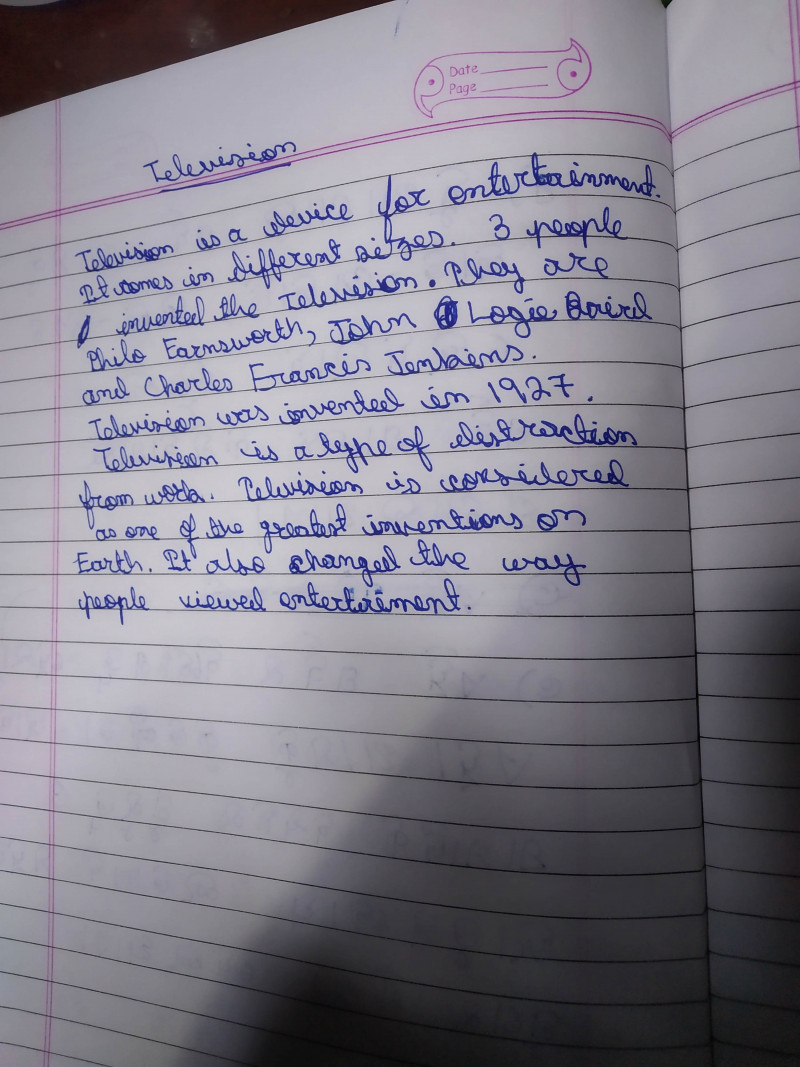 Date
Page
Television
Television is a device for entertainment.
It comes in different sizes. 3 people
invented the Television. They are
Philo Farnsworth, John Logie Baird
and Charles Francis Jenkins.
Television was invented in 1927.
Television is a type of distraction
from work. Television is considered
as one of the greatest inventions on
Earth. It also changed the way
people viewed enterteiment.